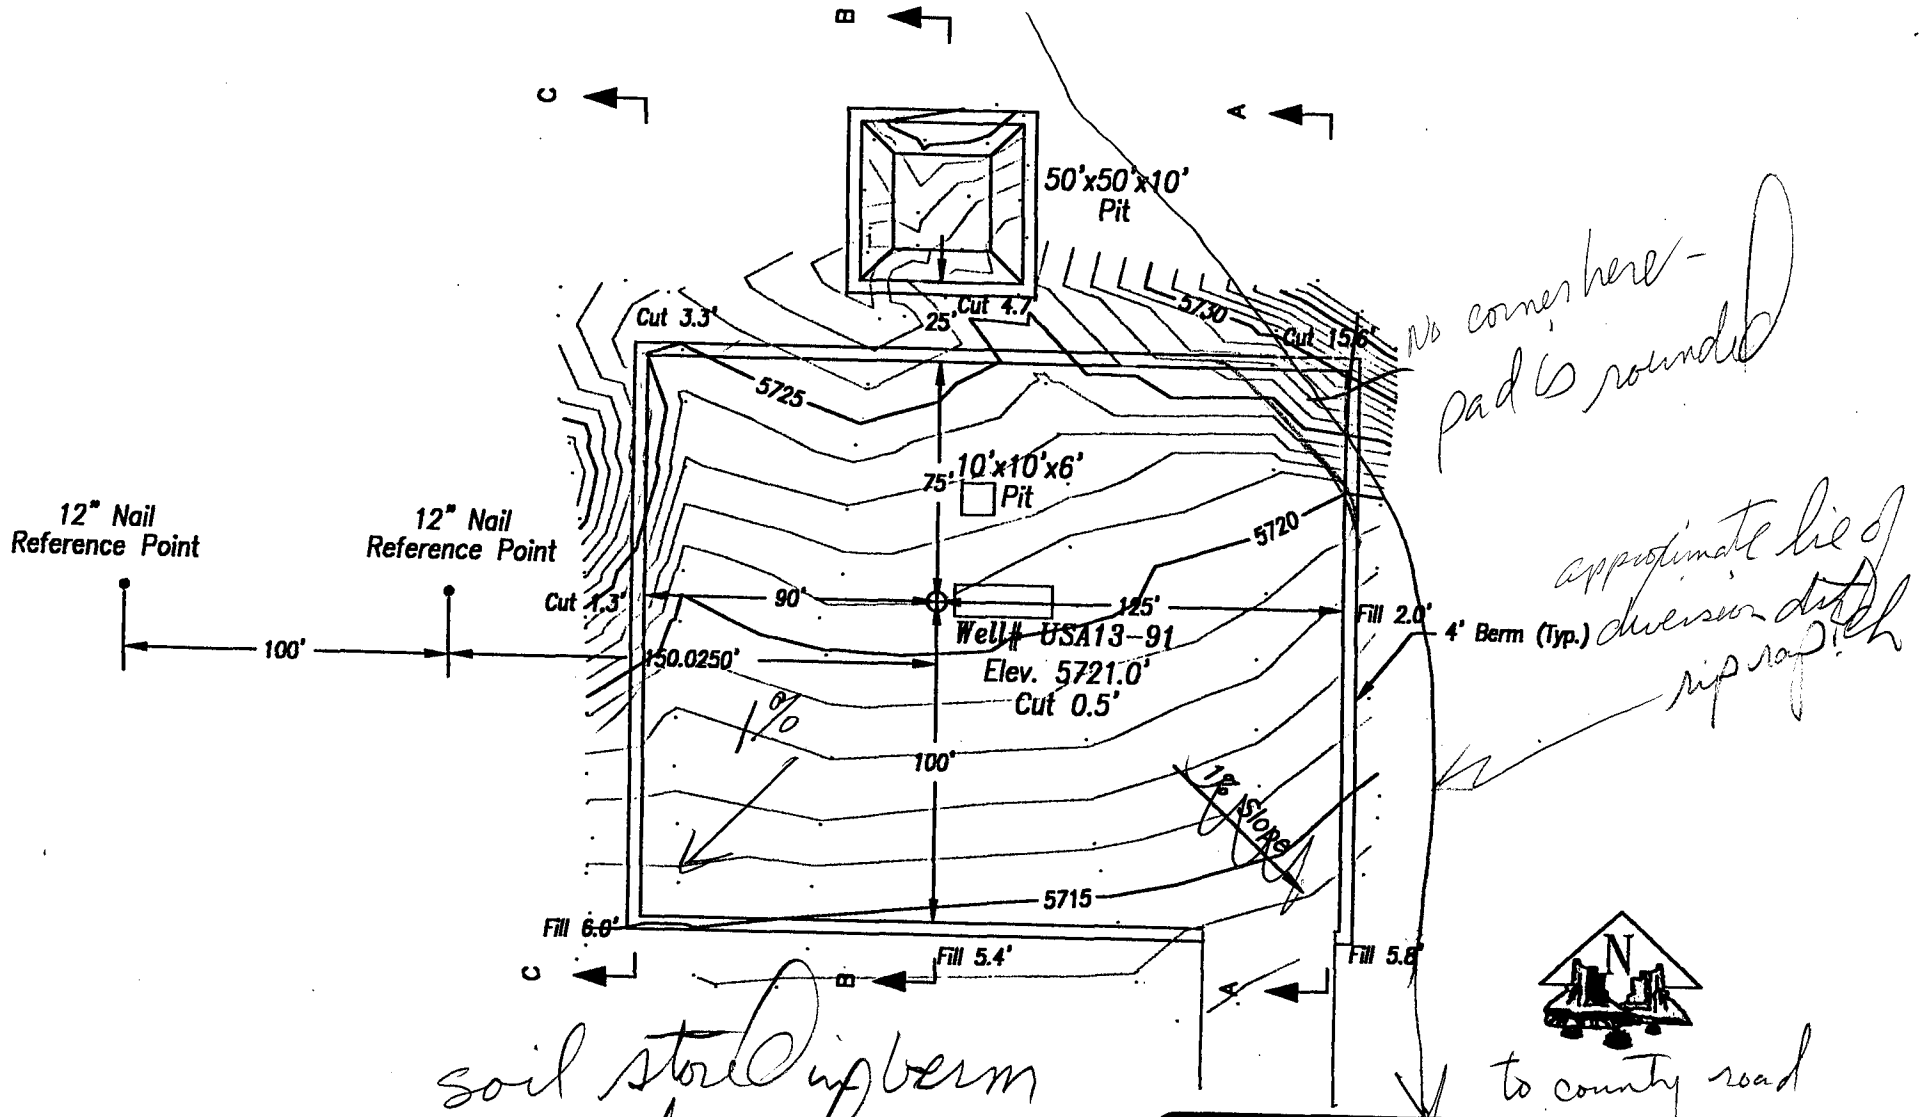 B
C
A
50'x50'x10'
Pit
Cut 3.3'
25'
Cut 4.7'
5730
Cut 15.6'
No corner here -
pad is rounded
5725
75'
10'x10'x6'
Pit
5720
12" Nail
Reference Point
12" Nail
Reference Point
approximate lie of
diversion ditch
riprap!
Cut 1.3'
90'
125'
Fill 2.0'
4' Berm (Typ.)
100'
150.0250'
Well# USA13-91
Elev. 5721.0'
Cut 0.5'
1%
100'
1% Slope
5715
Fill 6.0'
Fill 5.4'
Fill 5.8'
C
B
A
N
soil stored in berm
to county road